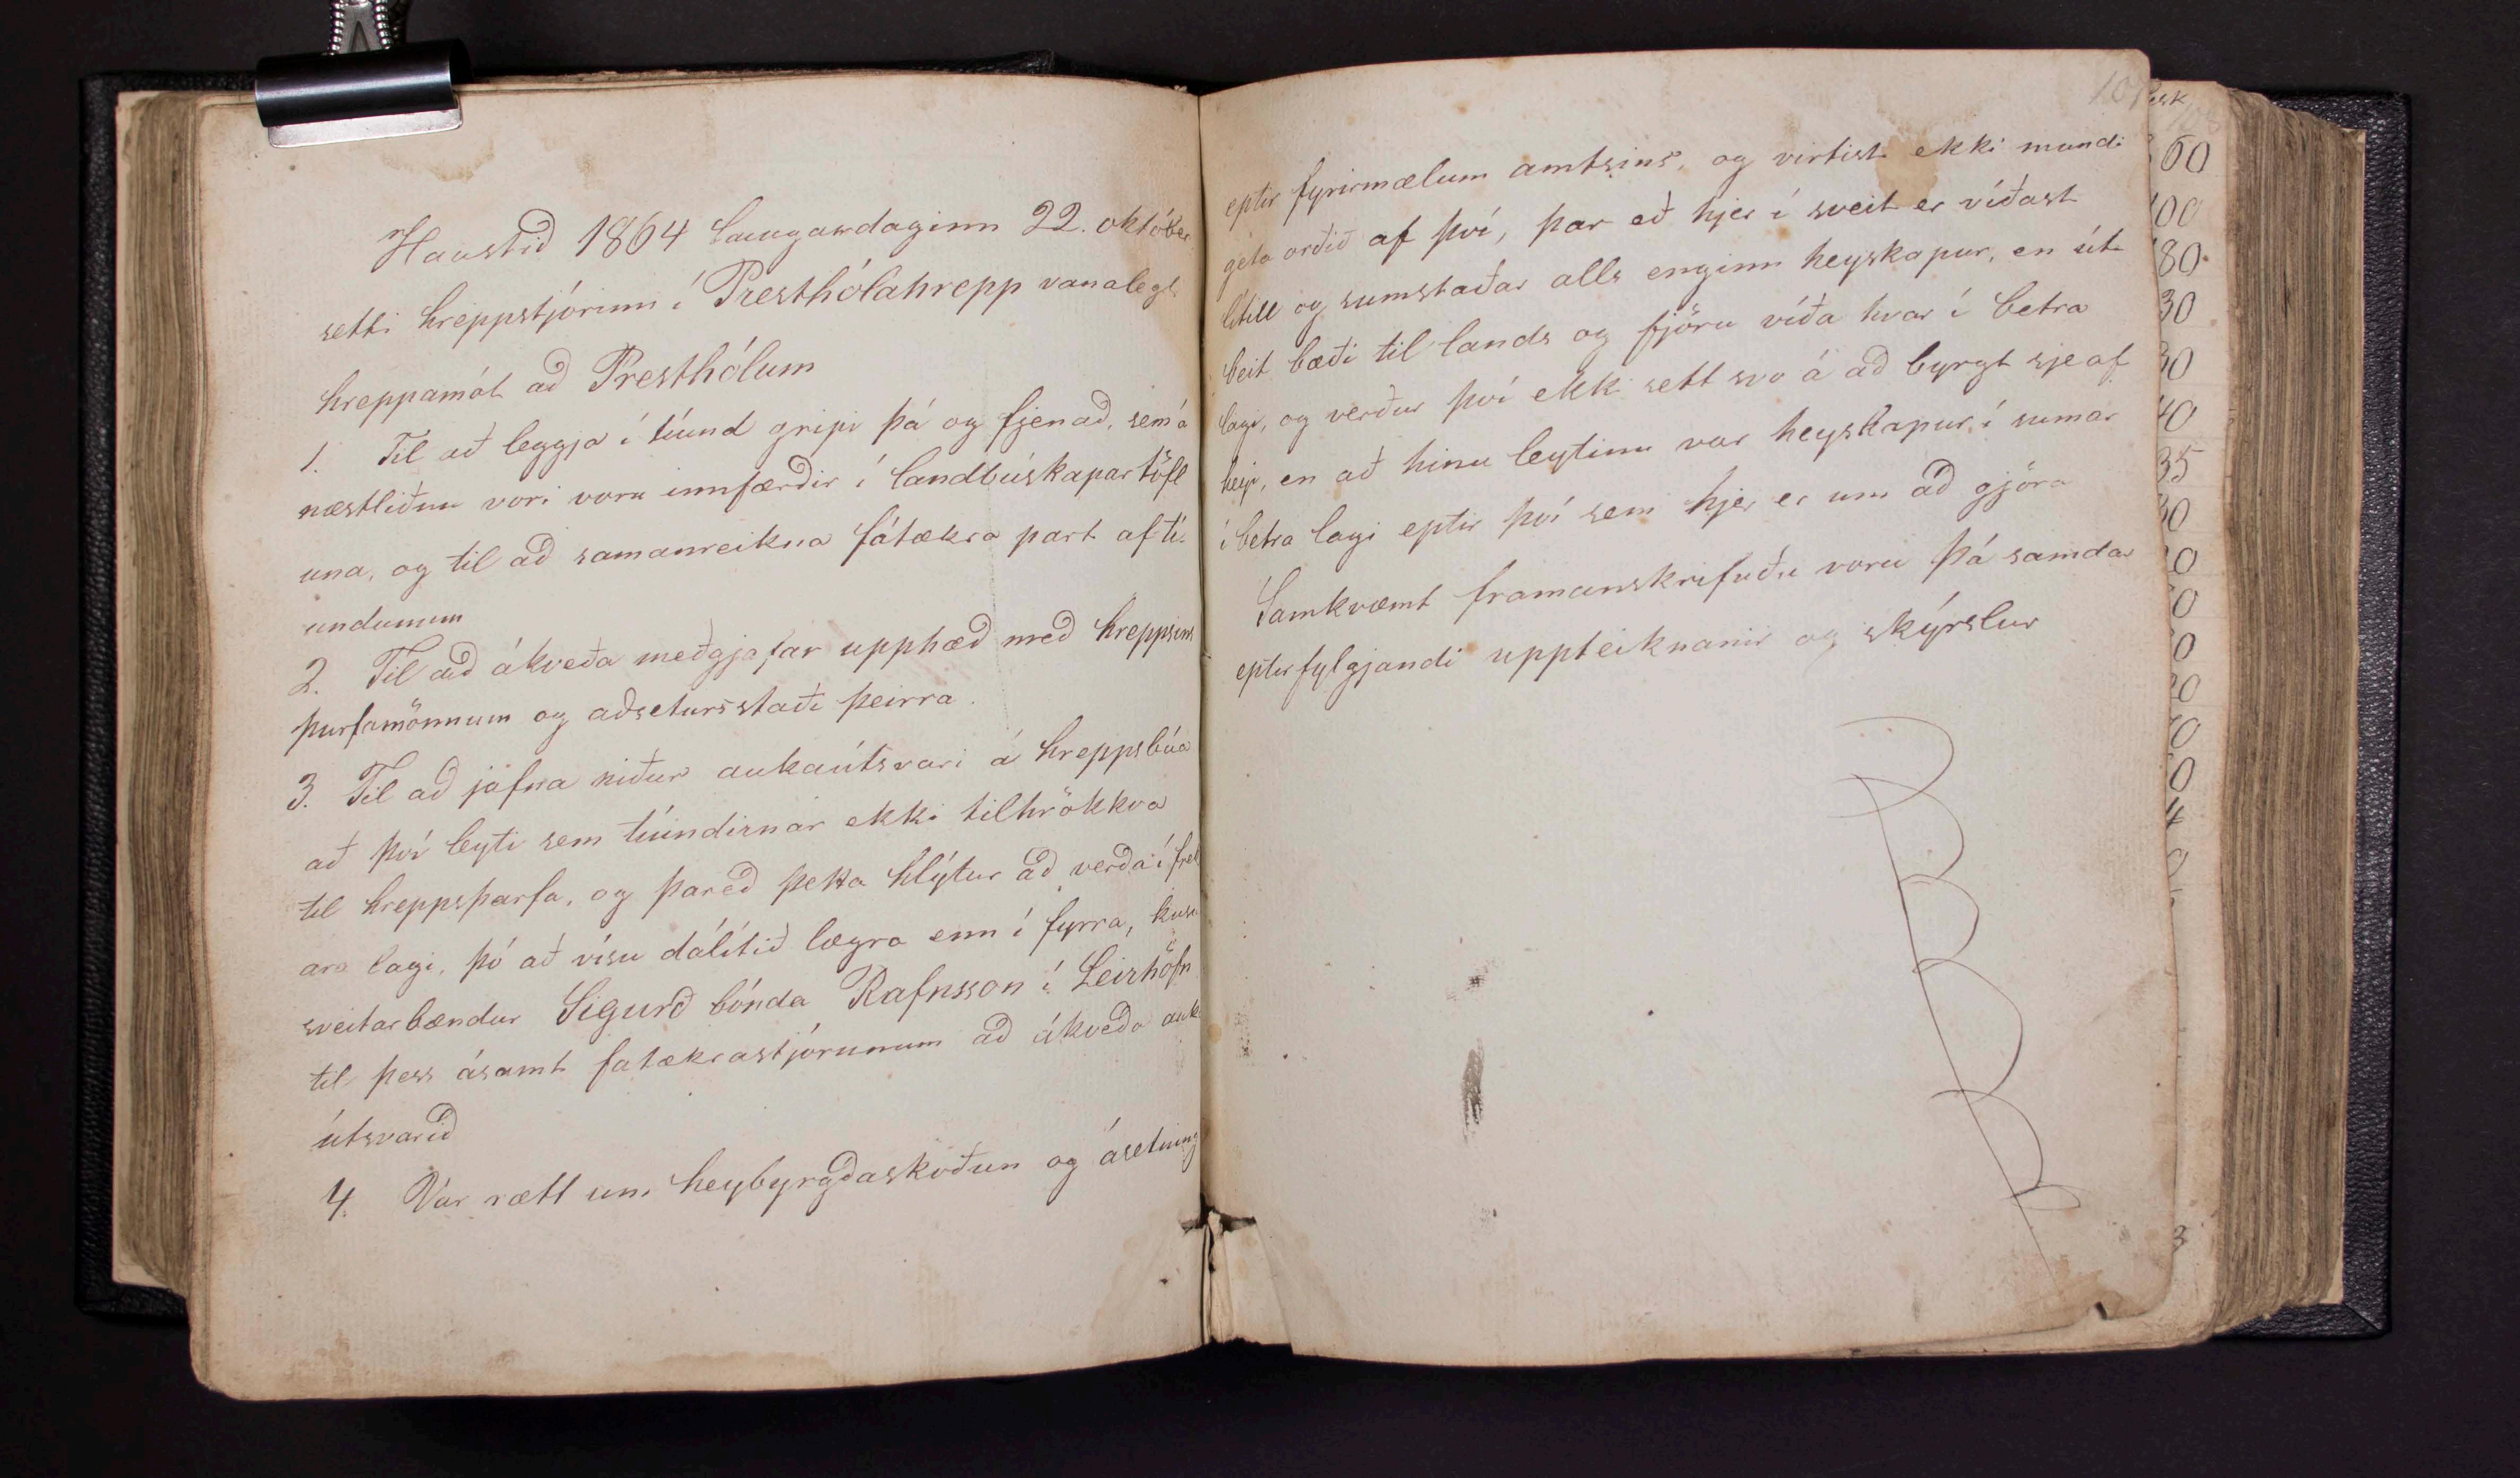 Haustið 1864 laugardaginn 22. október
setti hreppstjórinn í Presthólahrepp vanalegt
hreppamót að Presthólum
1. Til að leggja í tíund gripi þá og fjenað, sem á
næstliðnu vori voru innfærðir í landbúskapartöfl
una, og til að samanreikna fátækra part af tí-
undunum
2. Til að ákveða meðgjafar upphæð með hreppsins
þurfamönnum og aðsetursstaði þeirra.
3. Til að jafna niður aukaútsvari á hreppsbúa
að því leyti sem tíundirnar ekki tilhrökkva
til hreppsþarfa, og þareð þetta hlýtur að verða í frek
ara lagi, þó að vísu dálítið lægra enn í fyrra, kusu
sveitarbændur Sigurð bónda Rafnsson í Leirhöfn
til þess ásamt fatækrastjórunum að ákveða auk
útsvarið
4. Var rætt um heybyrgðaskoðun og ásetning
107
eptir fyrirmælum amtsins, og virtist ekki mundi
geta orðið af því, þar eð hjer í sveit er víðast
lítill og sumstaðar alls enginn heyskapur, en út
beit bæði til lands og fjöru víða hvar í betra
lagi, og verður því ekki sett svo á að byrgt sje af
heyi, en að hinu leytinu var heyskapur í sumar
í betra lagi eptir því sem hjer er um að gjöra
Samkvæmt framanskrifuðu voru þá samdar
eptirfylgjandi uppteiknanir og skýrslur
sk
108
60
100
80
30
30
40
35
30
0
0
0
20
0
0
4
3